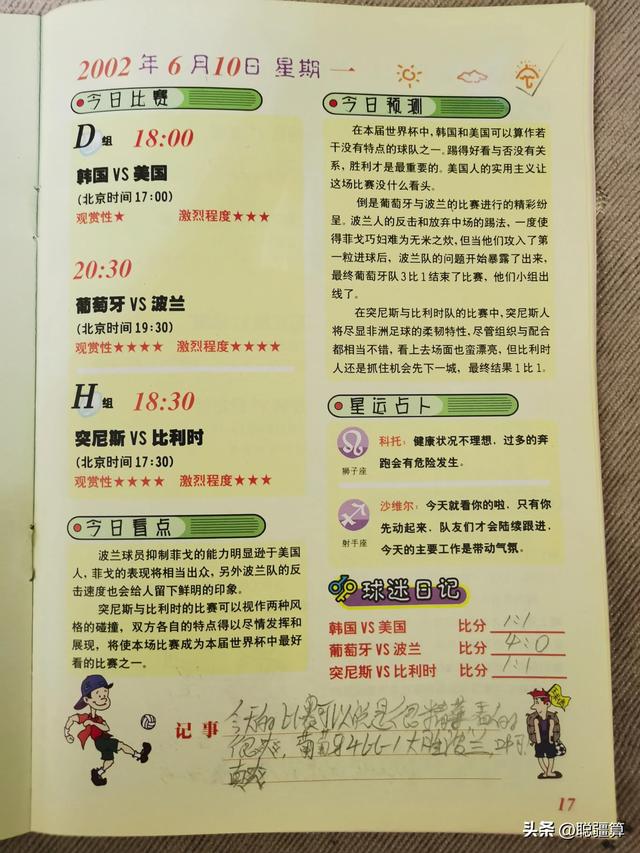 2002年6月10日 星期一
今日比赛
D组 18:00
韩国 VS 美国
(北京时间17:00)
观赏性★ 激烈程度★★★
20:30
葡萄牙 VS 波兰
(北京时间19:30)
观赏性★★★★ 激烈程度★★★★
H组 18:30
突尼斯 VS 比利时
(北京时间17:30)
观赏性★★★★ 激烈程度★★★
今日看点
波兰球员抑制菲戈的能力明显逊于美国
人,菲戈的表现将相当出众,另外波兰队的反
击速度也会给人留下鲜明的印象。
突尼斯与比利时的比赛可以视作两种风
格的碰撞,双方各自的特点得以尽情发挥和
展现,将使本场比赛成为本届世界杯中最好
看的比赛之一。
今日预测
在本届世界杯中,韩国和美国可以算作若
干没有特点的球队之一。踢得好看与否没有关
系,胜利才是最重要的。美国人的实用主义让
这场比赛没什么看头。
倒是葡萄牙与波兰的比赛进行的精彩纷
呈。波兰人的反击和放弃中场的踢法,一度使
得菲戈巧妇难为无米之炊,但当他们攻入了第
一粒进球后,波兰队的问题开始暴露了出来,
最终葡萄牙队3比1结束了比赛,他们小组出
线了。
在突尼斯与比利时队的比赛中,突尼斯人
将尽显非洲足球的柔韧特性,尽管组织与配合
都相当不错,看上去场面也蛮漂亮,但比利时
人还是抓住机会先下一城,最终结果1比1。
星运占卜
狮子座
科托:健康状况不理想,过多的奔
跑会有危险发生。
射手座
沙维尔:今天就看你的啦,只有你
先动起来,队友们才会陆续跟进,
今天的主要工作是带动气氛。
球迷日记
韩国 VS 美国 比分 1:1
葡萄牙 VS 波兰 比分 4:0
突尼斯 VS 比利时 比分 1:1
记事 今天的比赛可以说是很精彩 看的
很爽,葡萄牙4 大胜波兰,
真爽
17
头条 @聪疆算